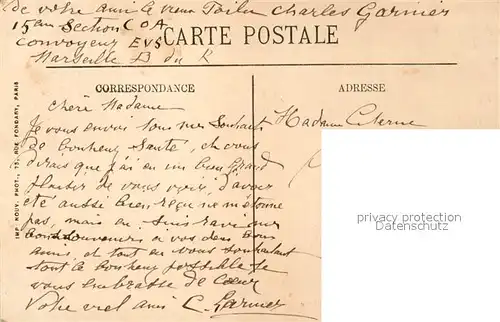 de votre ami le vieux Poilu Charles Garnier
15em Section C O A
convoyeur EVS
Marseille B du R
CARTE POSTALE
CORRESPONDANCE
ADRESSE
IMP. NOUV. PHOT., 13, RUE FONDARY, PARIS
Chère Madame
Je vous envoi tous mes Souhaits
de bonheur Santé, et vous
dirais que j'ai eu un bien grand
plaisir de vous voir, d'avoir
été aussi bien reçu ne m'étonne
pas, mais en suis ravi mes
bons souvenirs à vos deux bons
amis et tout en vous souhaitant
tout le bonheur possible je
vous embrasse de cœur
Votre viel ami C. Garnier
Madame
privacy protection
Datenschutz